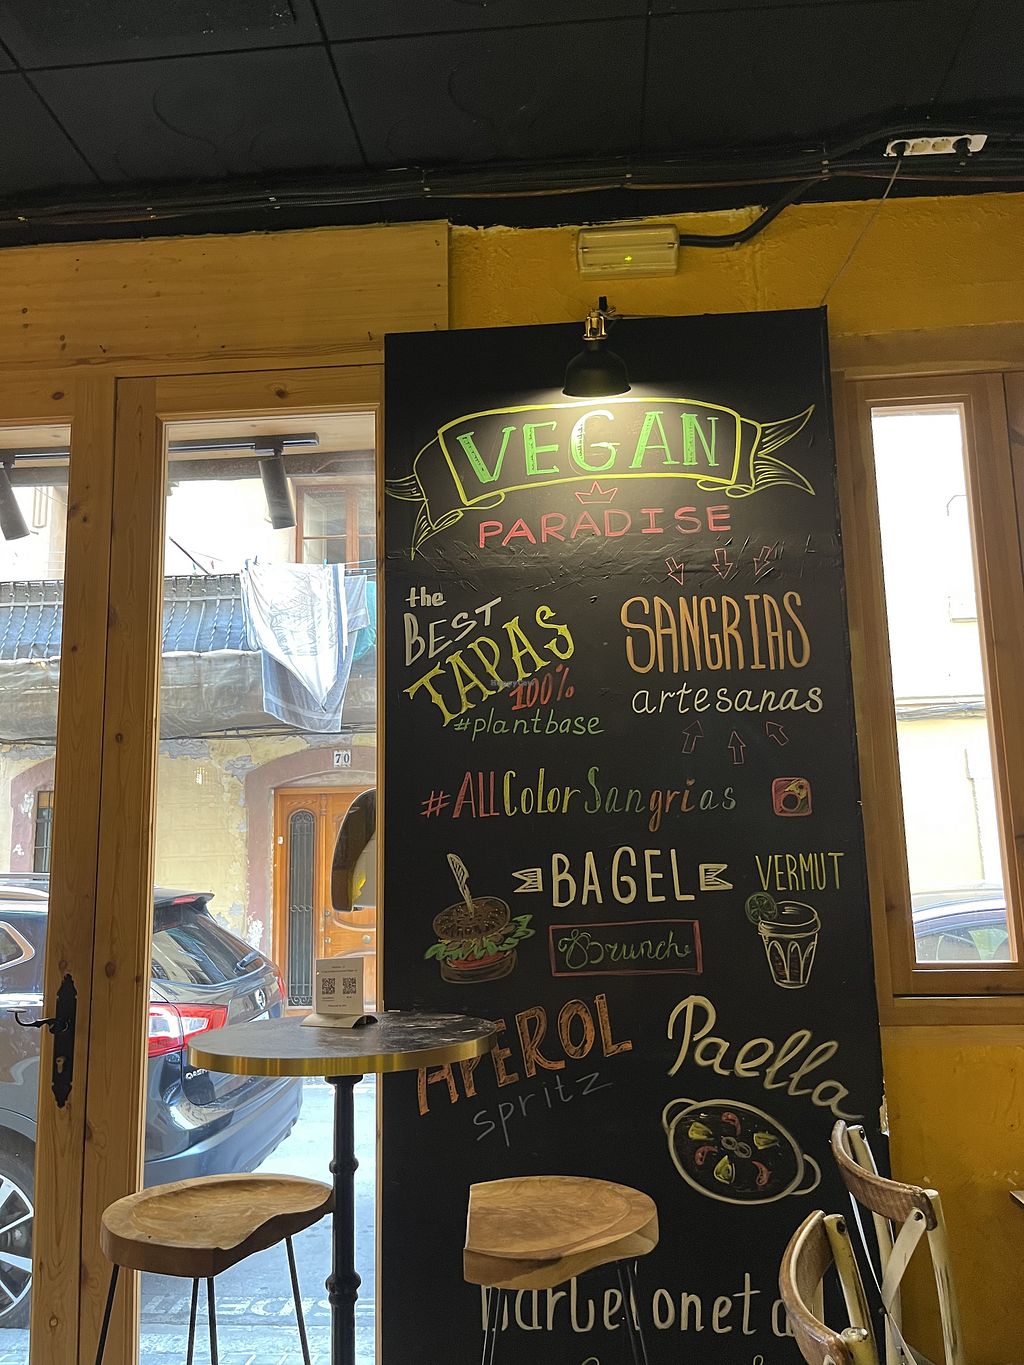 VEGAN
PARADISE
the
BEST
TAPAS
100%
#plantbase
SANGRIAS
artesanas
#ALLColorSangrias
BAGEL
Brunch
VERMUT
APEROL
spritz
Paella
70